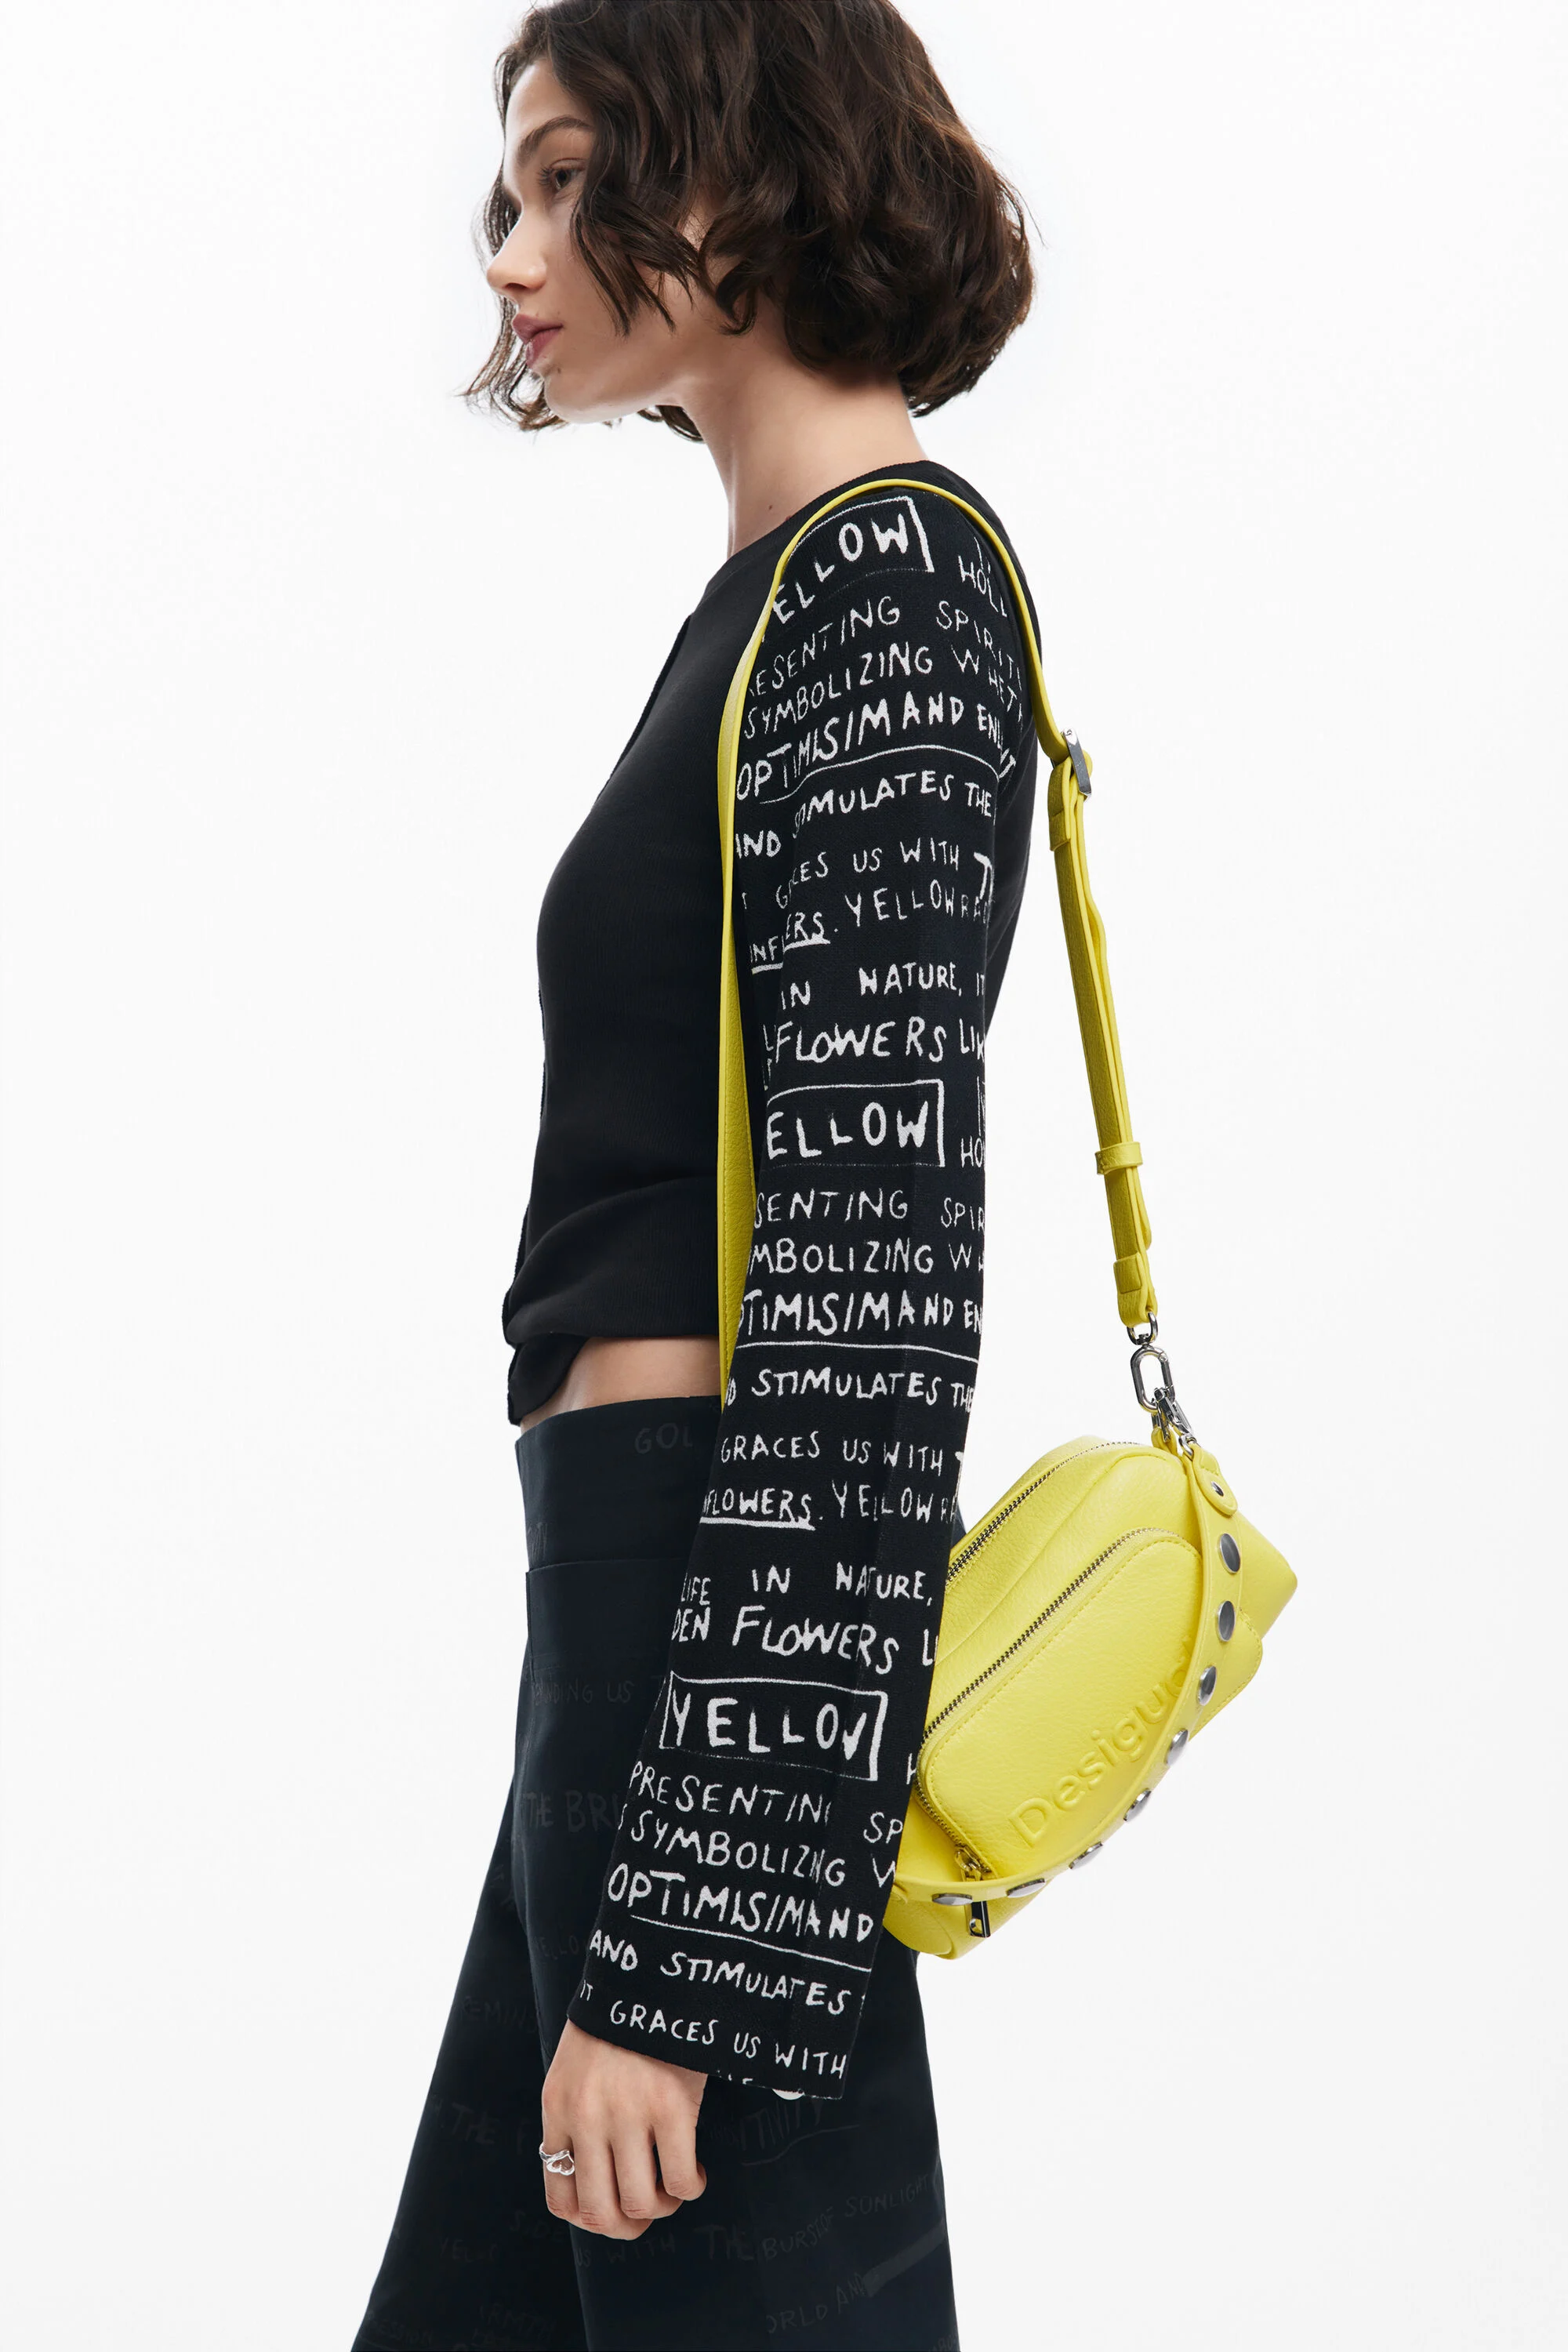 ELLOW
HOLL
ESENTING SPIRIT
SYMBOLIZING WHET
OPTIMISIM AND EN
AND STIMULATES THE
US WITH
ERS. YELLOW
IN NATURE, IT
FLOWERS LIK
ELLOW
HO
SENTING SPIR
MBOLIZING W
TIMISIM AND EN
STIMULATES THE
GRACES US WITH T
FLOWERS. YELLOW
LIFE IN NATURE,
DEN FLOWERS L
YELLOW
PRESENTIN SP
SYMBOLIZING W
OPTIMISIM AND
AND STIMULATES
IT GRACES US WITH
Desigua
GOL
US
THE BRI
THE F
SUNLIGHT
US WITH THE BURST OF
ORLD AN